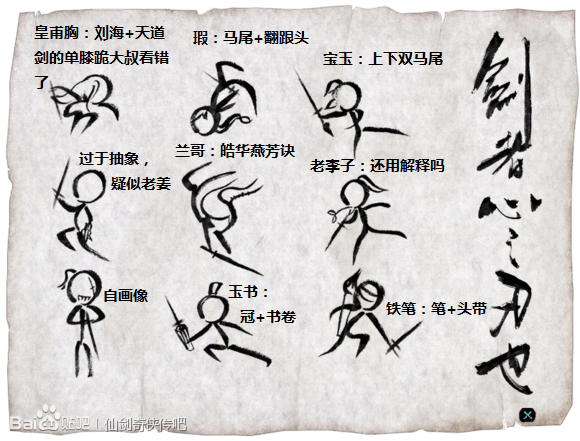 皇甫胸：刘海+天道
剑的单膝跪大叔看错
了
瑕：马尾+翻跟头
宝玉：上下双马尾
过于抽象，
疑似老姜
兰哥：皓华燕芳诀
老李子：还用解释吗
自画像
玉书：
冠+书卷
铁笔：笔+头带
剑者心之刃也
Bai du 贴吧 | 仙剑奇侠传吧